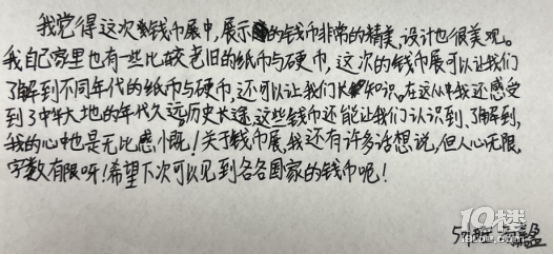 我觉得这次钱币展中,展示的钱币非常的精美,设计也很美观。
我自己家里也有一些比较老旧的纸币与硬币,这次的钱币展可以让我们
了解到不同年代的纸币与硬币,还可以让我们长知识。在这从中我还感受
到了中华大地的年代久远历史长途,这些钱币还能让我们认识到、了解到,
我的心中也是无比感慨!关于钱币展,我还有许多话想说,但人心无限
字数有限呀!希望下次可以见到各各国家的钱币呢!
19楼
19lou.com